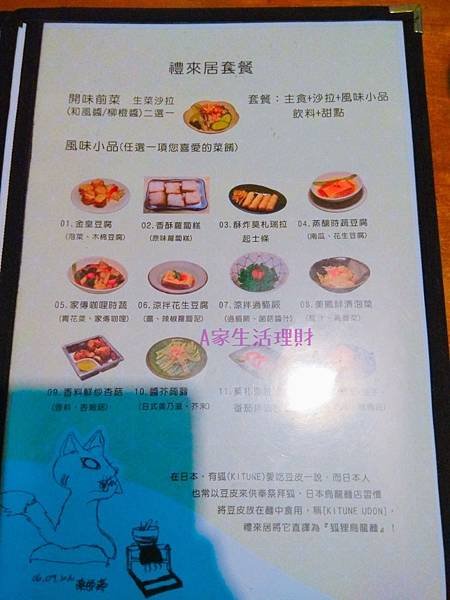 禮來居套餐
開味前菜 生菜沙拉
(和風醬/柳橙醬)二選一
套餐：主食+沙拉+風味小品
飲料+甜點
風味小品(任選一項您喜愛的菜餚)
01.金皇豆腐
(泡菜、木棉豆腐)
02.香酥蘿蔔糕
(原味蘿蔔糕)
03.酥炸莫札瑞拉
起士條
04.蒸釀時蔬豆腐
(南瓜、花生豆腐)
05.家傳咖哩時蔬
(青花菜、家傳咖哩)
06.涼拌花生豆腐
07.涼拌過貓蕨
08.美鳳鮮漬泡菜
A家生活理財
09.香料鮮炒杏菇
10.醬芥蒟蒻
(日式美乃滋、芥末)
11.
在日本，有狐(KITUNE)愛吃豆皮一說，而日本人
也常以豆皮來供奉祭拜狐。日本烏龍麵店習慣
將豆皮放在麵中食用，稱[KITUNE UDON]，
禮來居將它直譯為『狐狸烏龍麵』！